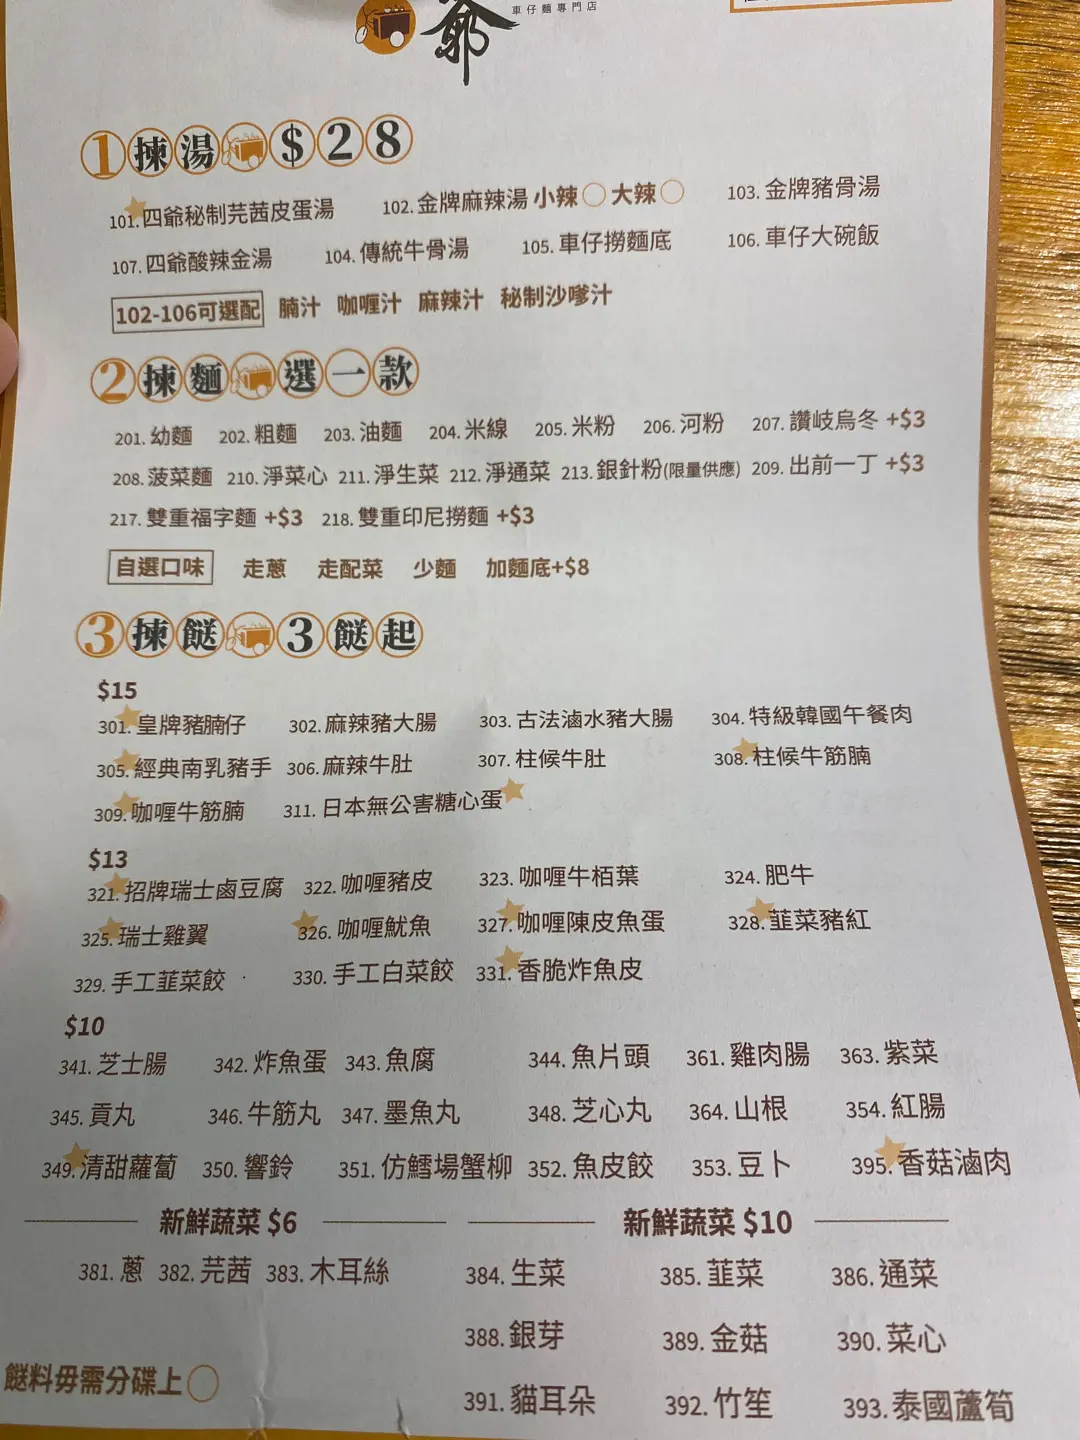 爺
車仔麵專門店
1揀湯 $28
101.四爺秘制芫茜皮蛋湯 102.金牌麻辣湯 小辣○ 大辣○ 103.金牌豬骨湯
107.四爺酸辣金湯 104.傳統牛骨湯 105.車仔撈麵底 106.車仔大碗飯
102-106可選配 腩汁 咖喱汁 麻辣汁 秘制沙嗲汁
2揀麵 選一款
201.幼麵 202.粗麵 203.油麵 204.米線 205.米粉 206.河粉 207.讚岐烏冬 +$3
208.菠菜麵 210.淨菜心 211.淨生菜 212.淨通菜 213.銀針粉(限量供應) 209.出前一丁 +$3
217.雙重福字麵 +$3 218.雙重印尼撈麵 +$3
自選口味 走蔥 走配菜 少麵 加麵底+$8
3揀餸 3餸起
$15
301.皇牌豬腩仔 302.麻辣豬大腸 303.古法滷水豬大腸 304.特級韓國午餐肉
305.經典南乳豬手 306.麻辣牛肚 307.柱候牛肚 308.柱候牛筋腩
309.咖喱牛筋腩 311.日本無公害糖心蛋
$13
321.招牌瑞士鹵豆腐 322.咖喱豬皮 323.咖喱牛栢葉 324.肥牛
325.瑞士雞翼 326.咖喱魷魚 327.咖喱陳皮魚蛋 328.韮菜豬紅
329.手工韮菜餃 330.手工白菜餃 331.香脆炸魚皮
$10
341.芝士腸 342.炸魚蛋 343.魚腐 344.魚片頭 361.雞肉腸 363.紫菜
345.貢丸 346.牛筋丸 347.墨魚丸 348.芝心丸 364.山根 354.紅腸
349.清甜蘿蔔 350.響鈴 351.仿鱈場蟹柳 352.魚皮餃 353.豆卜 395.香菇滷肉
新鮮蔬菜 $6 新鮮蔬菜 $10
381.蔥 382.芫茜 383.木耳絲 384.生菜 385.韮菜 386.通菜
388.銀芽 389.金菇 390.菜心
餸料毋需分碟上○ 391.貓耳朵 392.竹笙 393.泰國蘆筍